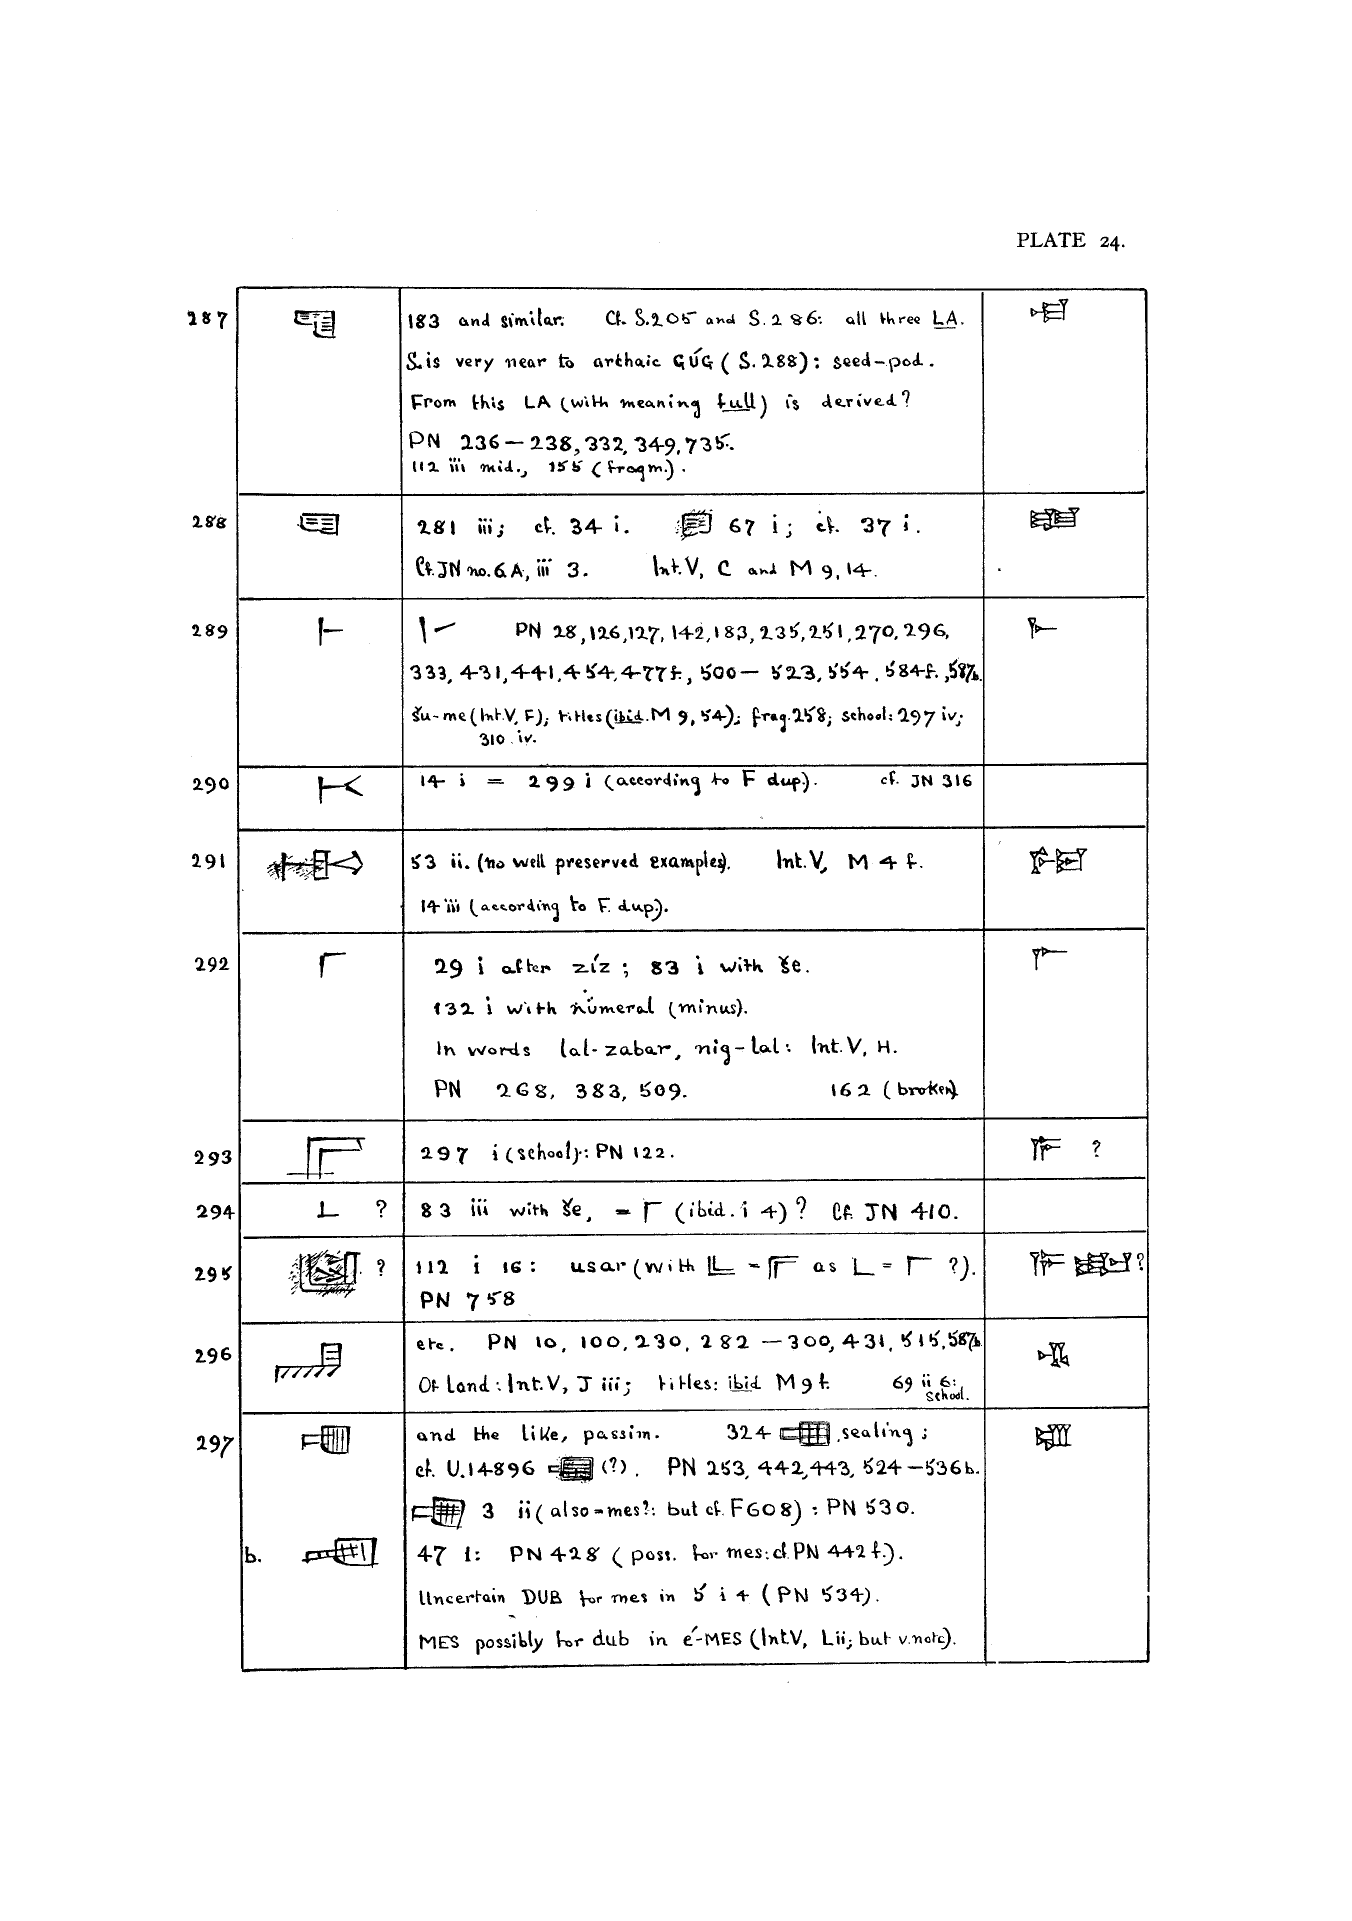 PLATE 24.
287 183 and similar. Cf. S.205 and S.286: all three LA.
S. is very near to archaic GÚG (S.288): seed-pod.
From this LA (with meaning full) is derived?
PN 236—238, 332, 349, 735.
112 iii mid., 155 (fragm.).
288 281 iii; cf. 34 i. 67 i; cf. 37 i.
Cf. JN no. 6A, iii 3. Int. V, C and M 9, 14.
289 PN 28, 126, 127, 142, 183, 235, 251, 270, 296,
333, 431, 441, 454, 477f., 500— 523, 554, 584f., 587b.
šu-me (Int. V, F); titles (ibid. M 9, 54); frag. 258; school: 297 iv;
310 iv.
290 14 i = 299 i (according to F dup.). cf. JN 316
291 53 ii. (no well preserved examples). Int. V, M 4 f.
14 iii (according to F. dup.).
292 29 i after zíz; 83 i with še.
132 i with numeral (minus).
In words lal-zabar, nig-lal: Int. V, H.
PN 268, 383, 509. 162 (broken)
293 297 i (school): PN 122. ?
294 ? 83 iii with še, = (ibid. i 4)? Cf. JN 410.
295 ? 112 i 16: usar (with = as = ?). ?
PN 758
296 etc. PN 10, 100, 230, 282 —300, 431, 515, 587b
Of land: Int. V, J iii; titles: ibid M 9 f. 69 ii 6:
school.
297 and the like, passim. 324 sealing;
cf. U.14896 (?). PN 253, 442, 443, 524—536b.
3 ii (also = mes?: but cf. F608): PN 530.
b. 47 i: PN 428 (poss. for mes: cf. PN 442 f.).
Uncertain DUB for mes in 5 i 4 (PN 534).
MES possibly for dub in é-MES (Int. V, L ii; but v. note).